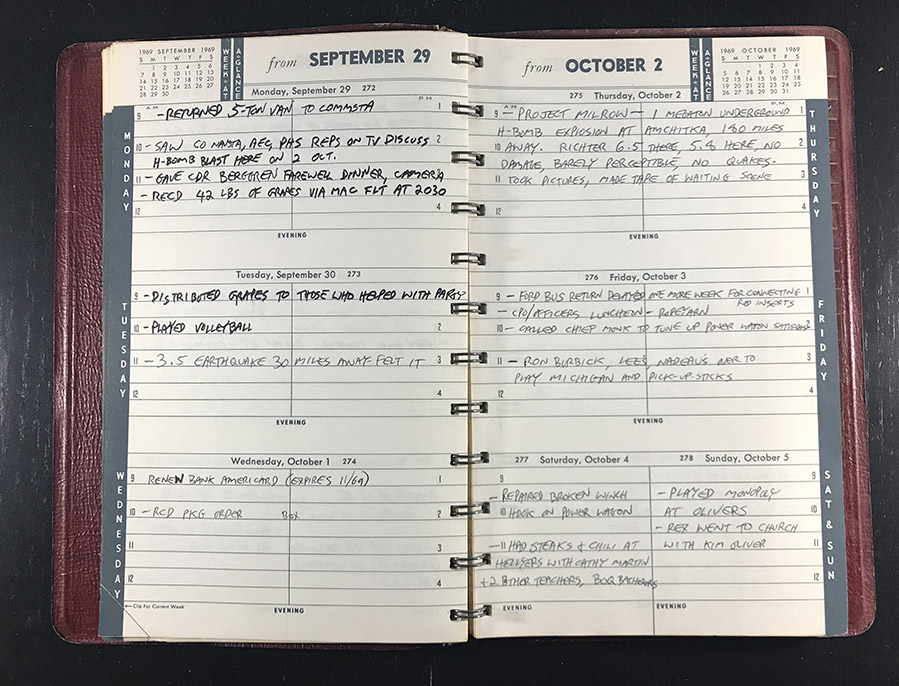 1969 SEPTEMBER 1969
S M T W T F S
1 2 3 4 5 6
7 8 9 10 11 12 13
14 15 16 17 18 19 20
21 22 23 24 25 26 27
28 29 30
WEEK-AT
A-GLANCE
from SEPTEMBER 29
Monday, September 29 272
MONDAY
A.M. P.M.
9 - RETURNED 5-TON VAN TO COMMSTA 1
10 - SAW CO NAVSTA, AEC, PHS REPS ON TV DISCUSS 2
H-BOMB BLAST HERE ON 2 OCT.
11 - GAVE CDR BERGGREN FAREWELL DINNER,
- RECD 42 LBS OF GRAPES VIA MAC FLT AT 2030
12 4
EVENING
Tuesday, September 30 273
TUESDAY
9 - DISTRIBUTED GRAPES TO THOSE WHO HELPED WITH PARTY
10 - PLAYED VOLLEYBALL 2
11 - 3.5 EARTHQUAKE 30 MILES AWAY FELT IT 3
12 4
EVENING
Wednesday, October 1 274
WEDNESDAY
9 RENEW BANK AMERICARD (EXPIRES 11/69) 1
10 - RCD PKG ORDER BOX 2
11 3
12 4
←Clip For Current Week
EVENING
from OCTOBER 2
WEEK-AT
A-GLANCE
1969 OCTOBER 1969
S M T W T F S
1 2 3 4
5 6 7 8 9 10 11
12 13 14 15 16 17 18
19 20 21 22 23 24 25
26 27 28 29 30 31
275 Thursday, October 2
THURSDAY
A.M. P.M.
9 - PROJECT MILROW - 1 MEGATON UNDERGROUND 1
H-BOMB EXPLOSION AT AMCHITKA, 180 MILES
10 AWAY. RICHTER 6.5 THERE, 5.4 HERE, NO 2
DAMAGE, BARELY PERCEPTIBLE, NO QUAKES.
11 TOOK PICTURES, MADE TAPE OF WAITING SCENE 3
12 4
EVENING
276 Friday, October 3
FRIDAY
9 - FORD BUS RETURN DELAYED ONE MORE WEEK FOR CONNECTING 1
ROD INSERTS
- CPO/OFFICERS LUNCHEON - ROPEYARN
10 - CALLED CHIEF MONK TO TUNE UP POWER WAGON SATURDAY 2
11 - RON BURBICK, LEES, NADEAUS OVER TO 3
PLAY MICHIGAN AND PICK-UP-STICKS
12 4
EVENING
277 Saturday, October 4
9
- REPAIRED BROKEN WINCH
10 HOOK ON POWER WAGON
- 11 HAD STEAKS & CHILI AT
HELLYERS WITH CATHY MARTIN
+ 2 OTHER TEACHERS, BOQ BACHELORS
EVENING
278 Sunday, October 5
SAT & SUN
9
- PLAYED MONOPOLY
AT OLIVERS 10
- REX WENT TO CHURCH
WITH KIM OLIVER 11
12
EVENING